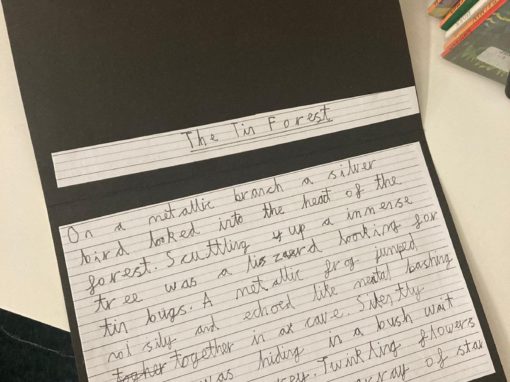 The Tin Forest
On a metallic branch a silver
bird looked into the heart of the
forest. Scuttling up a immense
tree was a lizzard looking for
tin bugs. A metallic frog jumped
noisily and echoed like metal bashing
together in a cave. Silently
was hiding in a bush wait
Twinkling flowers
array of star